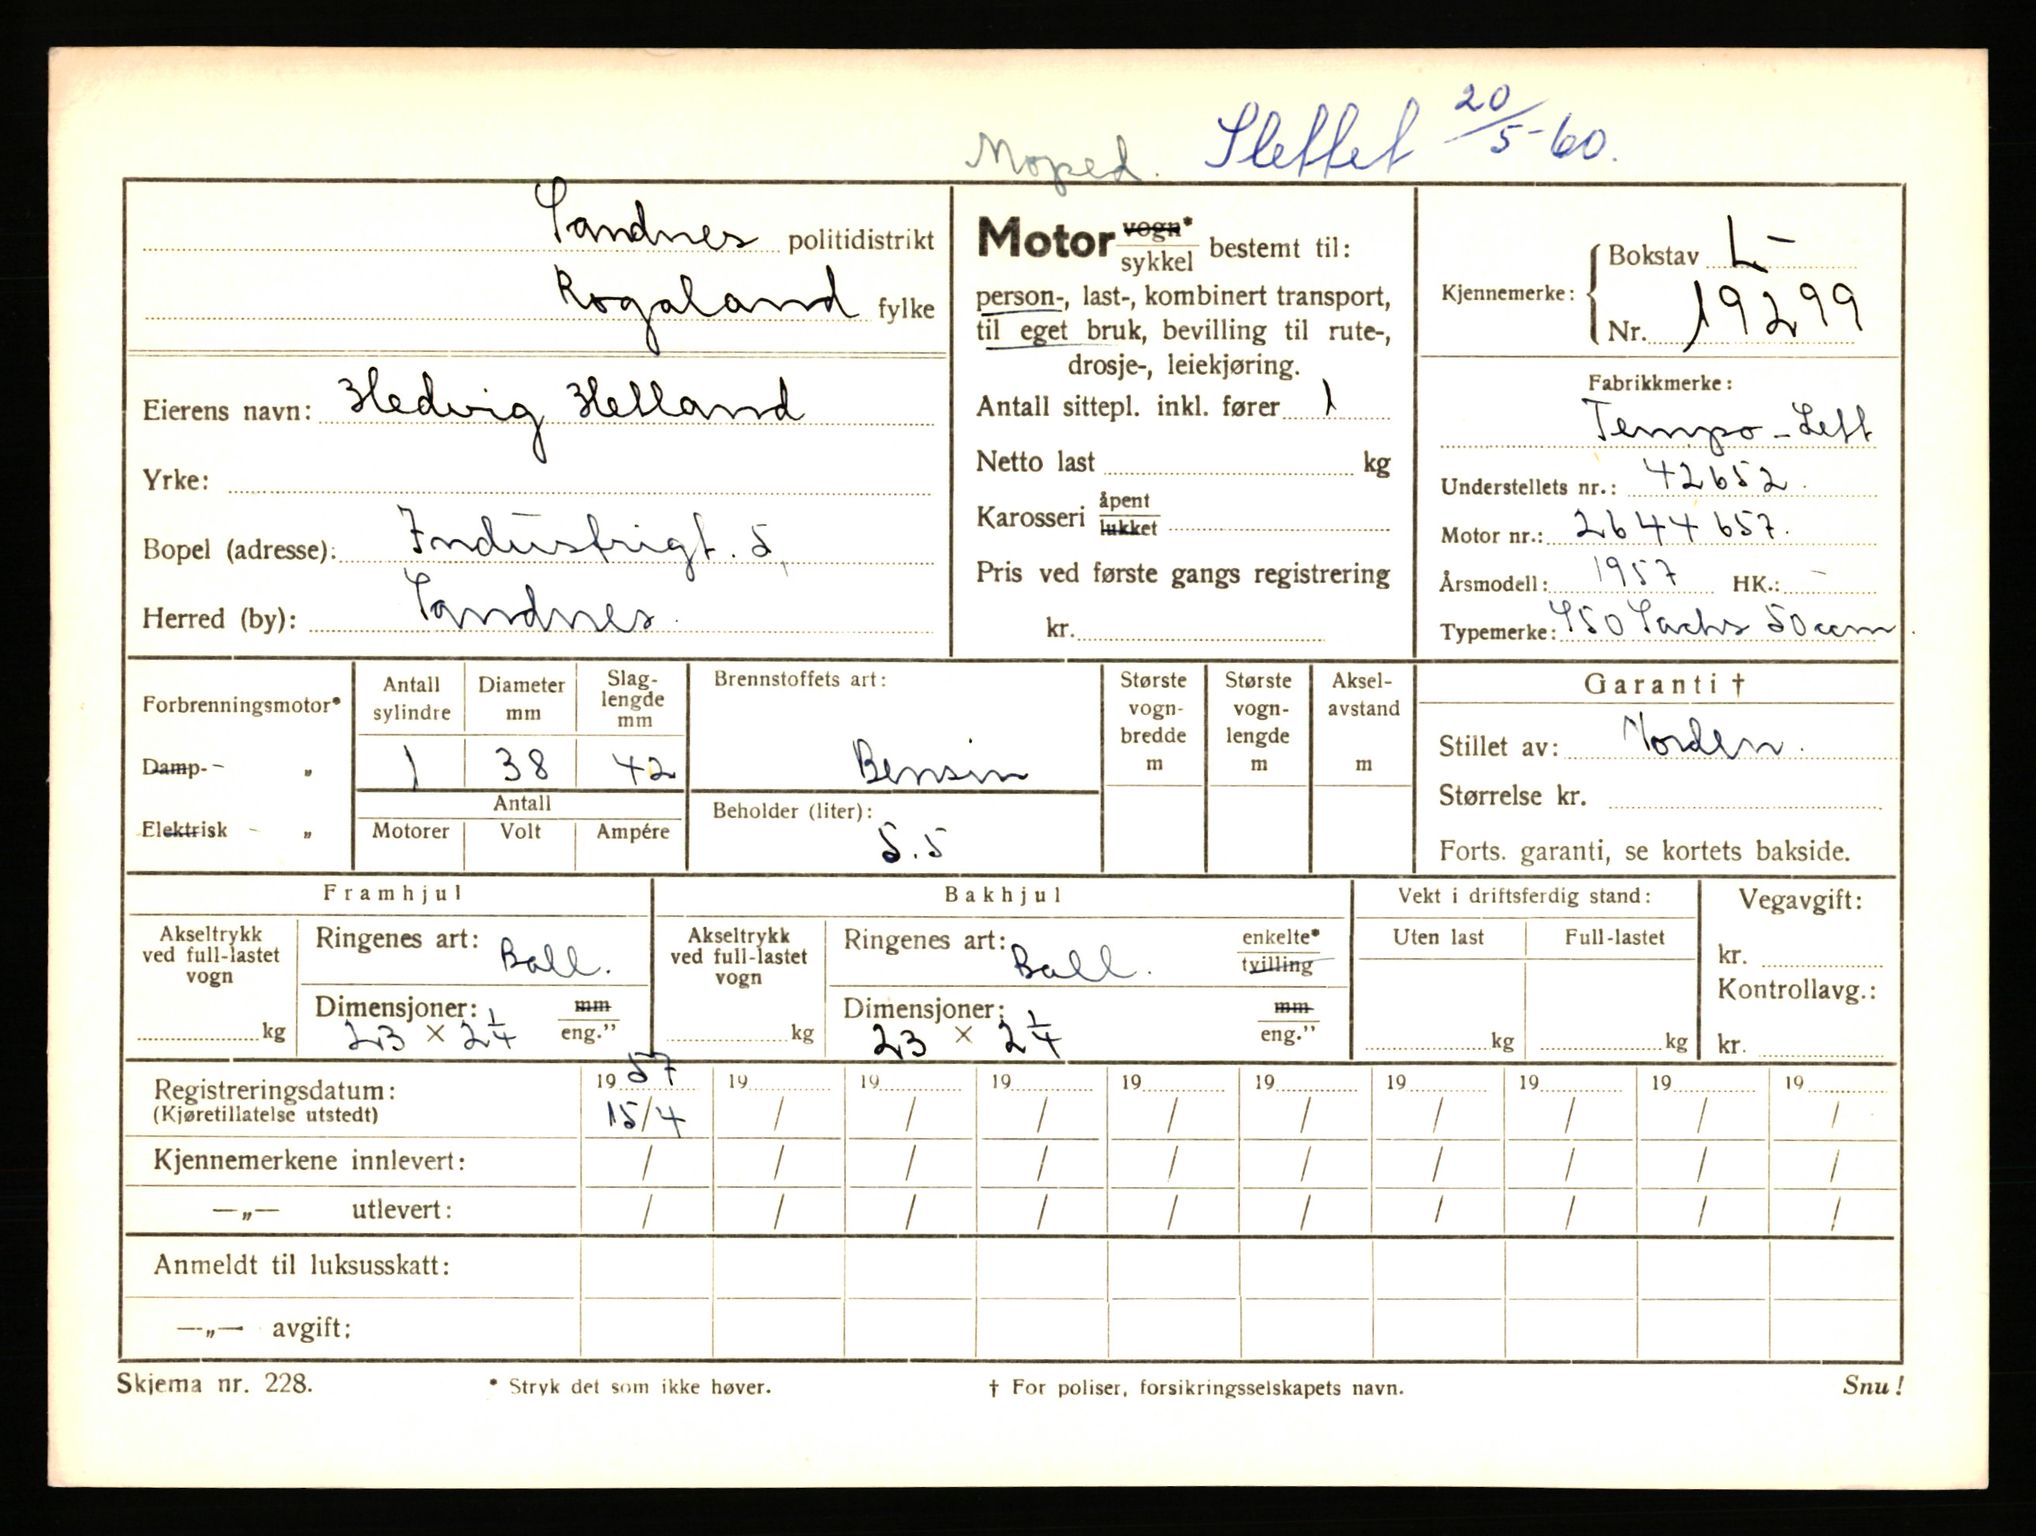 Moped. Slettet 20/5-60.
Sandnes politidistrikt
Rogaland fylke
Eierens navn: Hedvig Helland
Yrke:
Bopel (adresse): Industrigt. 5,
Herred (by): Sandnes.
Motor vogn* / sykkel bestemt til:
person-, last-, kombinert transport,
til eget bruk, bevilling til rute-,
drosje-, leiekjøring.
Antall sittepl. inkl. fører 1
Netto last kg
Karosseri åpent / lukket
Pris ved første gangs registrering
kr.
Kjennemerke: Bokstav L-
Nr. 19299
Fabrikkmerke:
Tempo-Lett
Understellets nr.: 42652.
Motor nr.: 2644657.
Årsmodell: 1957 HK.: -
Typemerke: S50 Sachs 50 ccm.
Forbrenningsmotor*
Damp- - „
Elektrisk - „
Antall sylindre
1
Diameter mm
38
Slag-lengde mm
42
Antall
Motorer Volt Ampére
Brennstoffets art:
Bensin
Beholder (liter):
5.5
Største vogn-bredde m
Største vogn-lengde m
Aksel-avstand m
Garanti †
Stillet av: Norden.
Størrelse kr.
Forts. garanti, se kortets bakside.
Framhjul
Akseltrykk ved full-lastet vogn
kg
Ringenes art: Ball.
Dimensjoner: mm / eng.”
23 × 2 1/4
Bakhjul
Akseltrykk ved full-lastet vogn
kg
Ringenes art: Ball. enkelte* / tvilling
Dimensjoner: mm / eng.”
23 × 2 1/4
Vekt i driftsferdig stand:
Uten last Full-lastet
kg kg
Vegavgift:
kr.
Kontrollavg.:
kr.
Registreringsdatum: 19 57 19 19 19 19 19 19 19 19 19
(Kjøretillatelse utstedt) 15/4 / / / / / / / / /
Kjennemerkene innlevert: / / / / / / / / / /
—„— utlevert: / / / / / / / / / /
Anmeldt til luksusskatt:
—„— avgift:
Skjema nr. 228. * Stryk det som ikke høver. † For poliser, forsikringsselskapets navn. Snu!